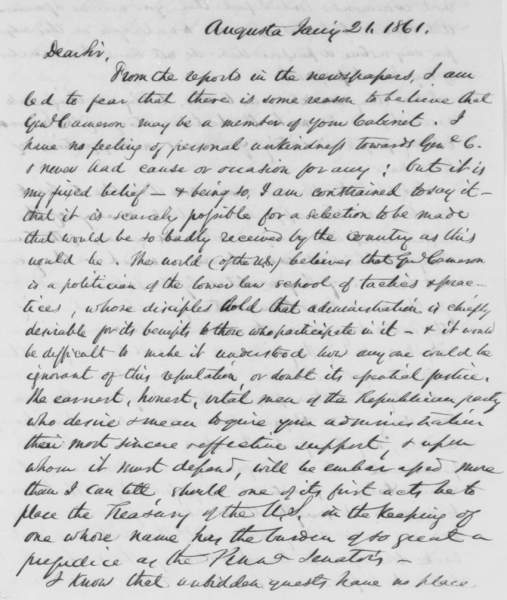 Augusta Jan'y 21. 1861.
Dear Sir,
From the reports in the newspapers, I am
led to fear that there is some reason to believe that
Gen'l Cameron may be a member of your Cabinet. I
have no feeling of personal unkindness towards Gen'l C.
I never had cause or occasion for any; but it is
my fixed belief — & being so, I am constrained to say it —
that it is scarcely possible for a selection to be made
that would be so badly received by the country as this
would be. The world (of the U.S.) believes that Gen'l Cameron
is a politician of the lower law school of tactics & prac-
tices, whose disciples hold that administration is chiefly
desirable for its benefits to those who participate in it — & it would
be difficult to make it understood how any one could be
ignorant of this reputation, or doubt its justice.
The earnest, honest, vital men of the Republican party
who desire & mean to give your administration
their most sincere & effective support, & upon
whom it must depend, will be embarassed more
than I can tell, should one of its first acts be to
place the Treasury of the U.S. in the keeping of
one whose name has the burden of so great a
prejudice as the Penn'a Senator's —
I know that unbidden guests have no place